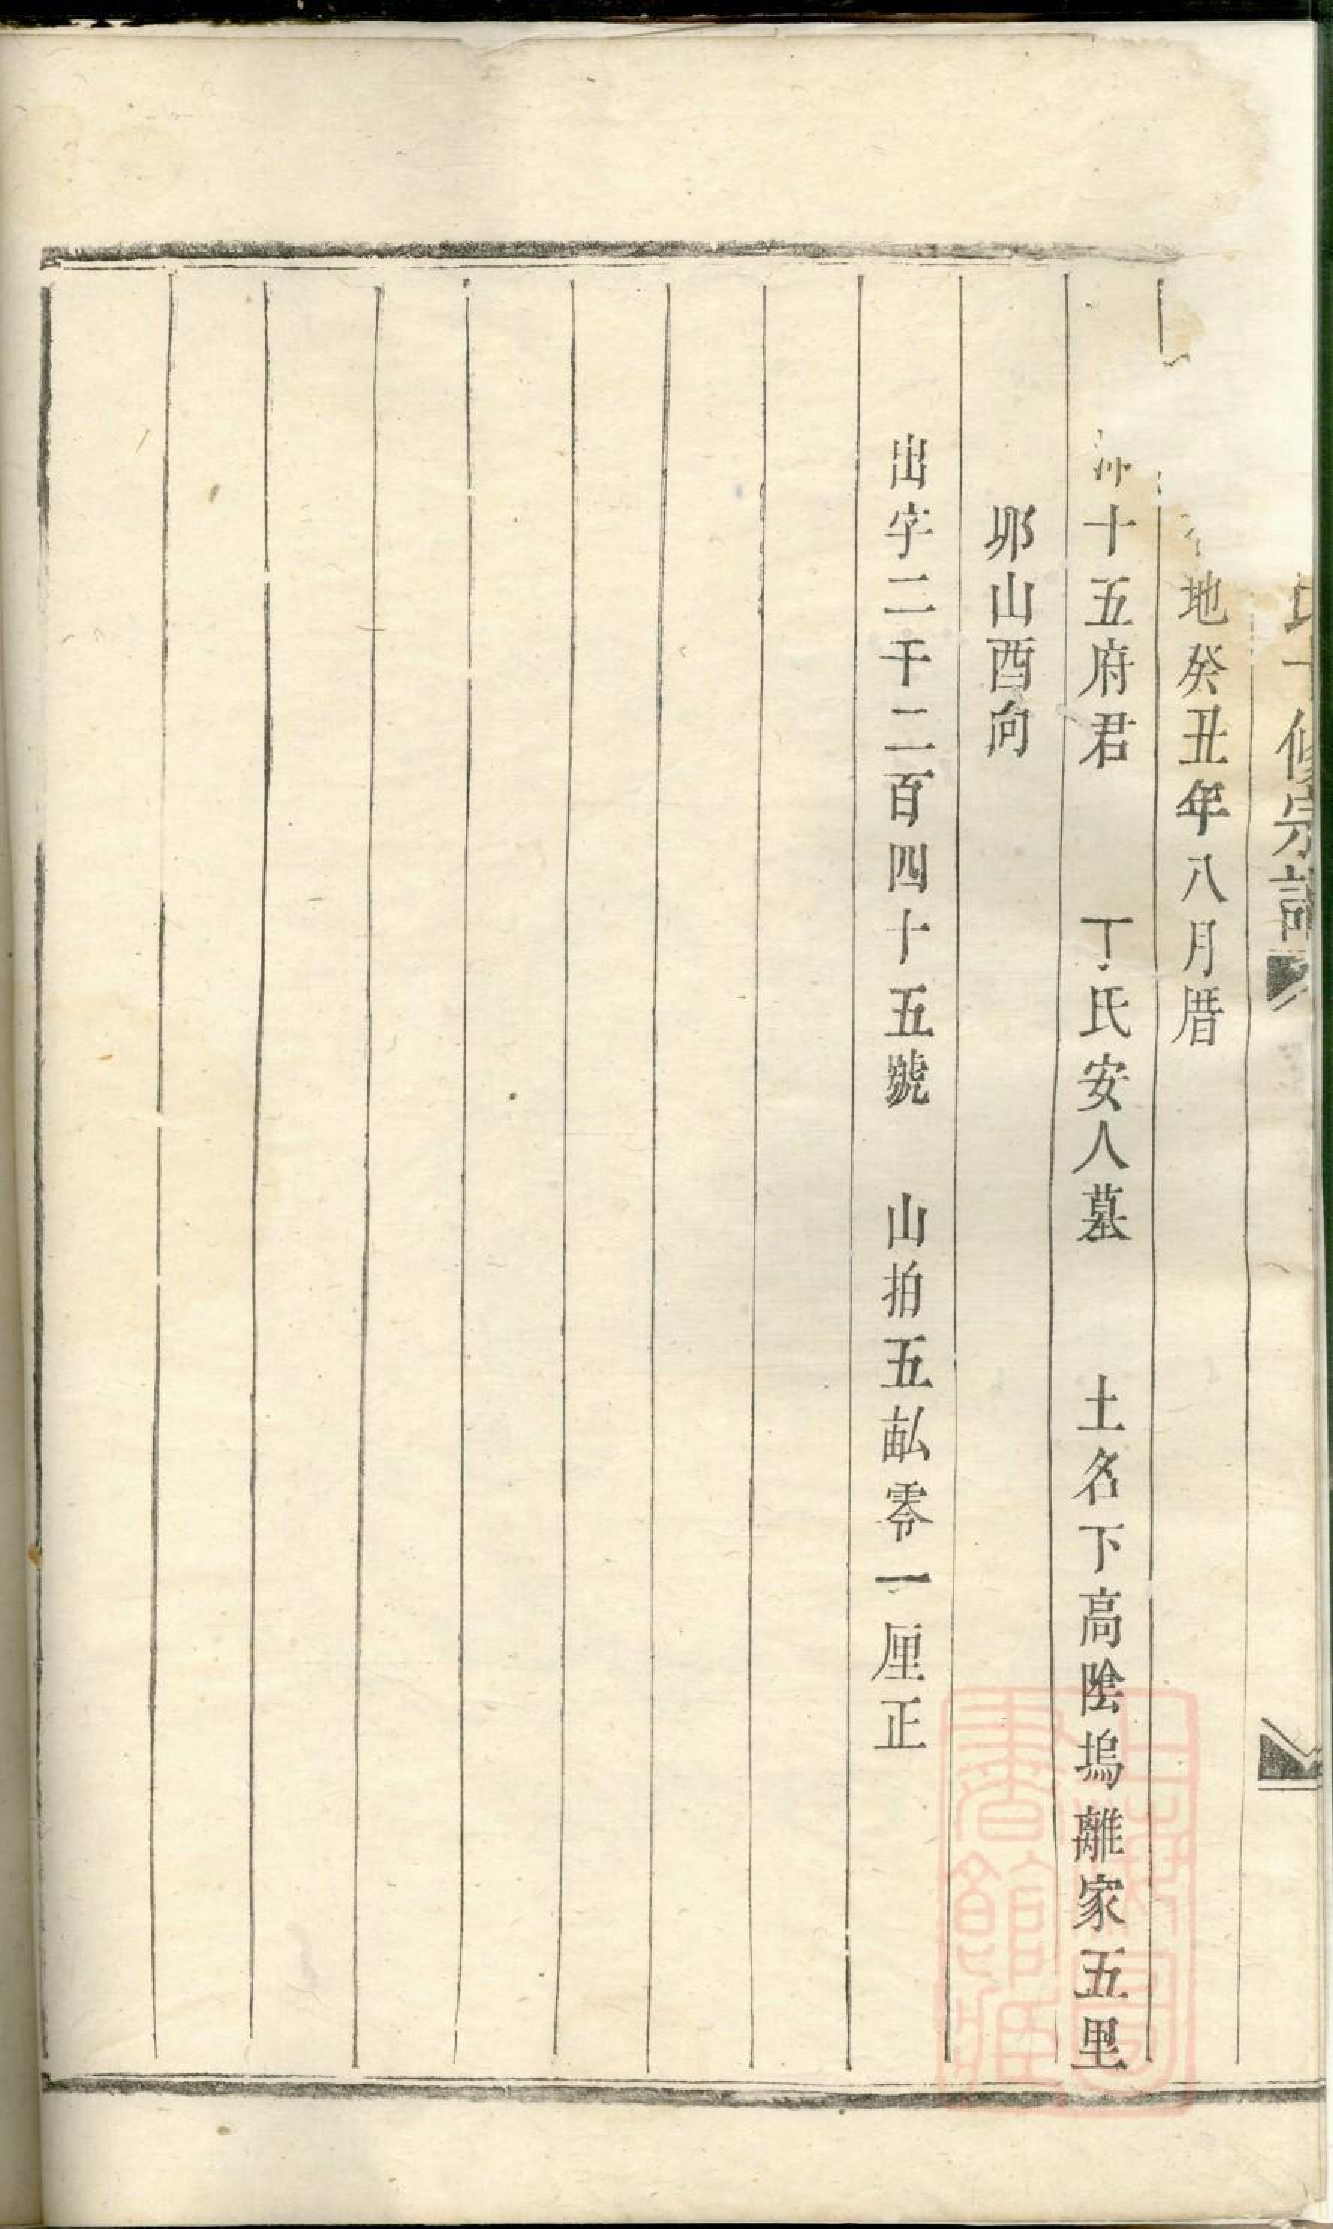 修宗譜
地癸丑年八月厝
十五府君　丁氏安人墓　土名下高陰塢離家五里
卯山酉向
出字二千二百四十五號　山拍五畝零一厘正
上海圖書館藏